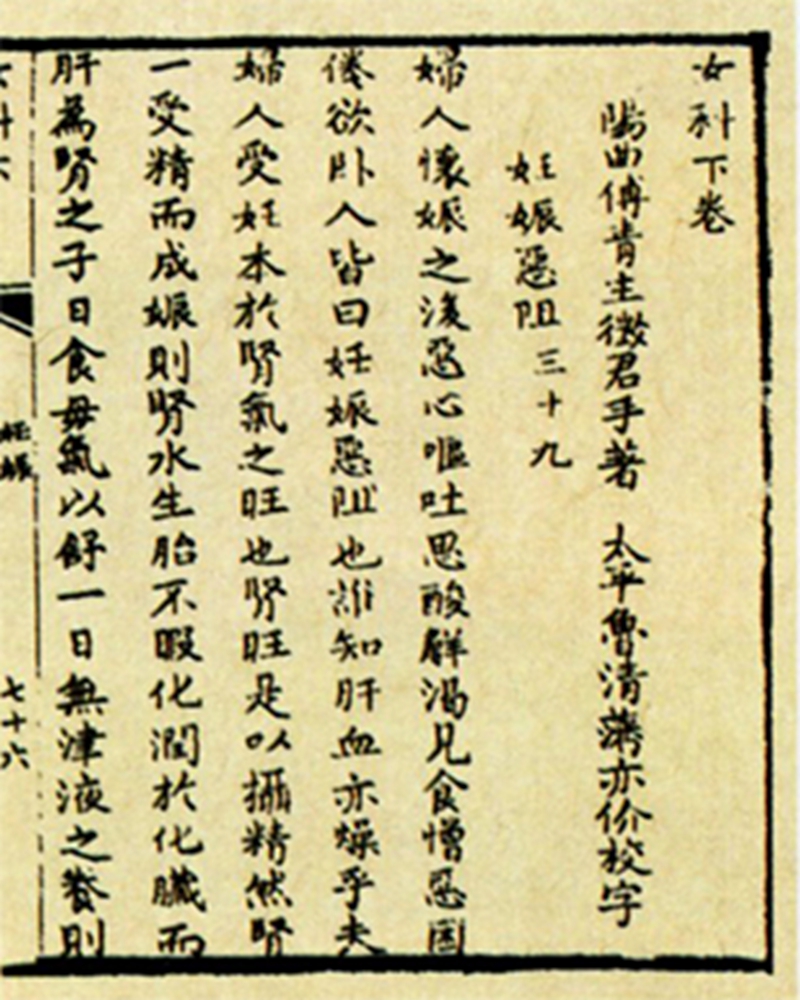 女科下卷
陽曲傅青主徵君手著 太平魯清藩亦价校字
妊娠惡阻三十九
婦人懷娠之後惡心嘔吐思酸解渴見食憎惡困
倦欲臥人皆曰妊娠惡阻也誰知肝血亦燥乎夫
婦人受妊本於腎氣之旺也腎旺是以攝精然腎
一受精而成娠則腎水生胎不暇化潤於化臟而
肝為腎之子日食母氣以舒一日無津液之養則
女科
妊娠
七十六